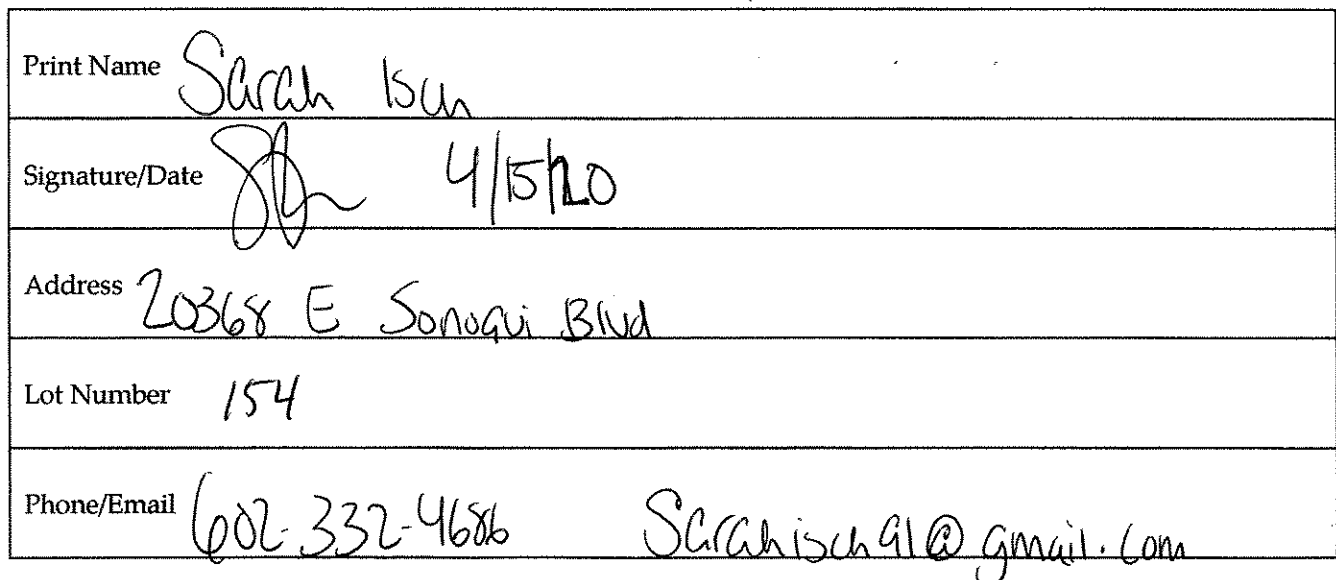 Print Name Sarah Isch
Signature/Date 4/15/20
Address 20368 E Sonoqui Blvd
Lot Number 154
Phone/Email 602-332-4686 Sarahisch91@gmail.com